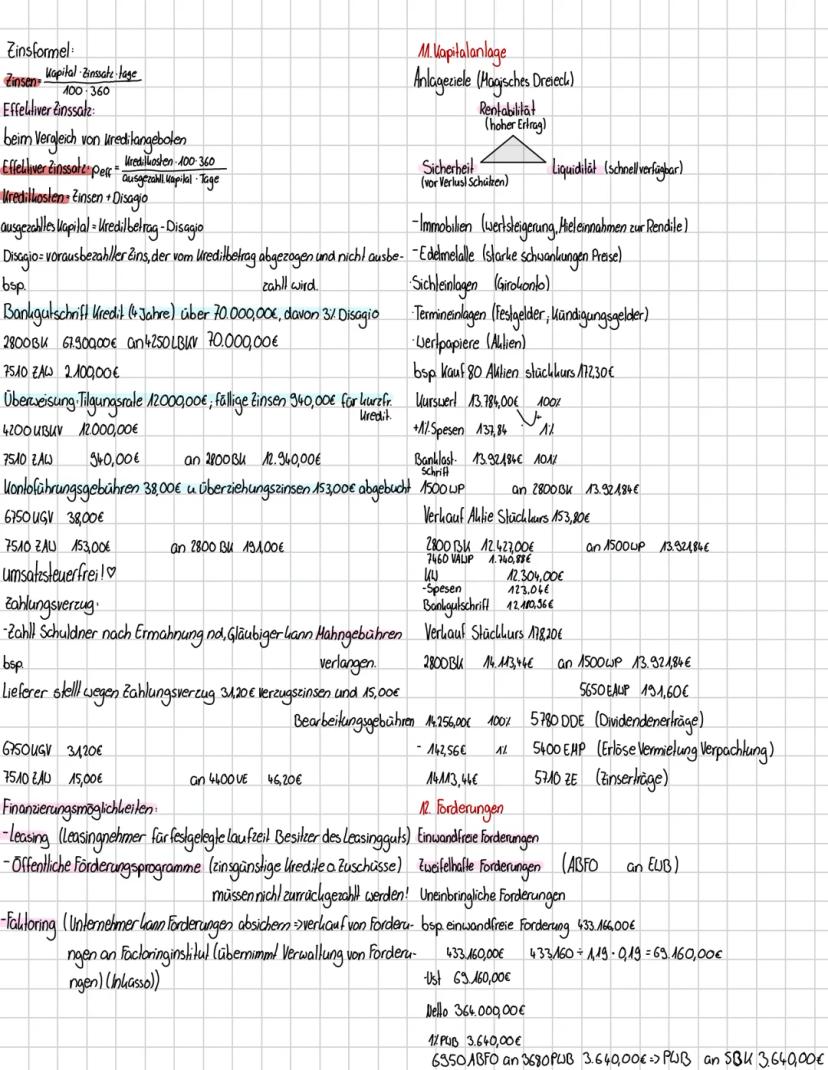 Zinsformel:
Zinsen = Kapital · Zinssatz · tage
100 · 360
Effektiver Zinssatz:
beim Vergleich von Kreditangeboten
Effektiver Zinssatz: peff = Kreditkosten · 100 · 360
ausgezahlt. Kapital · Tage
Kreditkosten = Zinsen + Disagio
ausgezahltes Kapital = Kreditbetrag - Disagio
Disagio = vorausbezahlter Zins, der vom Kreditbetrag abgezogen und nicht ausbe-
bsp. zahlt wird.
Bankgutschrift Kredit (4 Jahre) über 70.000,00€, davon 3% Disagio
2800 BK 67.900,00€ an 4250 LBKV 70.000,00€
7510 ZAW 2.100,00€
Überweisung: Tilgungsrate 12000,00€; fällige Zinsen 940,00€ für kurzfr.
Kredit.
4200 KBKV 12.000,00€
7510 ZAW 940,00€ an 2800 BK 12.940,00€
Kontoführungsgebühren 38,00€ u. Überziehungszinsen 153,00€ abgebucht
6750 KGV 38,00€
7510 ZAW 153,00€ an 2800 BK 191,00€
umsatzsteuerfrei! ♡
Zahlungsverzug:
-Zahlt Schuldner nach Ermahnung nd, Gläubiger kann Mahngebühren
bsp. verlangen.
Lieferer stellt wegen Zahlungsverzug 31,20€ Verzugszinsen und 15,00€
Bearbeitungsgebühren
6750 KGV 31,20€
7510 ZAW 15,00€ an 4400 VE 46,20€
Finanzierungsmöglichkeiten:
-Leasing (Leasingnehmer für festgelegte laufzeit Besitzer des Leasingguts)
- Öffentliche Förderungsprogramme (zinsgünstige Kredite o. Zuschüsse)
müssen nicht zurrückgezahlt werden!
-Faktoring (Unternehmer kann Forderungen absichern => verkauf von Forderu-
ngen an Factoringinstitut (übernimmt Verwaltung von Forderu-
ngen) (Inkasso))
11. Kapitalanlage
Anlageziele (Magisches Dreieck)
Rentabilität
(hoher Ertrag)
Sicherheit Liquidität (schnell verfügbar)
(vor Verlust Schützen)
-Immobilien (Wertsteigerung, Mieteinnahmen zur Rendite)
-Edelmetalle (starke schwankungen Preise)
·Sichteinlagen (Girokonto)
·Termineinlagen (Festgelder, Kündigungsgelder)
·Wertpapiere (Aktien)
bsp. Kauf 80 Aktien stückkurs 172,30€
Kurswert 13.784,00€ 100%
+1% Spesen 137,84 1%
Banklast- 13.921,84€ 101%
schrift
1500 WP an 2800 BK 13.921,84€
Verkauf Aktie Stückkurs 153,80€
2800 BK 12.427,00€ an 1500 WP 13.921,84€
7460 VAWP 1.740,88€
KW 12.304,00€
-Spesen 123,04€
Bankgutschrift 12.180,96€
Verkauf Stückkurs 178,20€
2800 BK 14.113,44€ an 1500 WP 13.921,84€
5650 EAWP 191,60€
14.256,00€ 100% 5780 DDE (Dividendenerträge)
- 142,56€ 1% 5400 EMP (Erlöse Vermietung Verpachtung)
14.113,44€ 5710 ZE (Zinserträge)
12. Forderungen
Einwandfreie Forderungen
Zweifelhafte Forderungen (ABFO an EWB)
Uneinbringliche Forderungen
bsp. einwandfreie Forderung 433.166,00€
433.160,00€ 433.160 ÷ 1,19 · 0,19 = 69.160,00€
-Ust 69.160,00€
Netto 364.000,00€
1% PWB 3.640,00€
6950 ABFO an 3680 PWB 3.640,00€ => PWB an SBK 3.640,00€